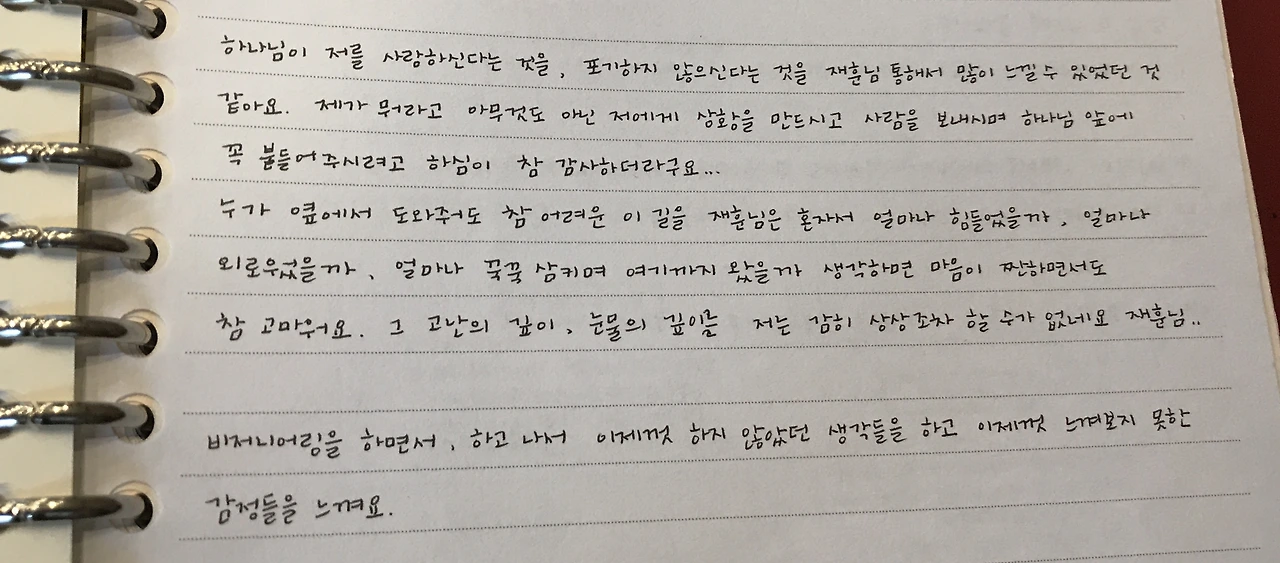 하나님이 저를 사랑하신다는 것을, 포기하지 않으신다는 것을 재훈님 통해서 많이 느낄 수 있었던 것
같아요. 제가 뭐라고 아무것도 아닌 저에게 상황을 만드시고 사람을 보내시며 하나님 앞에
꼭 붙들어 주시려고 하심이 참 감사하더라구요...
누가 옆에서 도와줘도 참 어려운 이 길을 재훈님은 혼자서 얼마나 힘들었을까, 얼마나
외로우셨을까, 얼마나 꾹꾹 삼키며 여기까지 왔을까 생각하면 마음이 찐하면서도
참 고마워요. 그 고난의 깊이, 눈물의 깊이를 저는 감히 상상조차 할 수가 없네요 재훈님..
비저니어링을 하면서, 하고 나서 이제껏 하지 않았던 생각들을 하고 이제껏 느껴보지 못한
감정들을 느껴요.